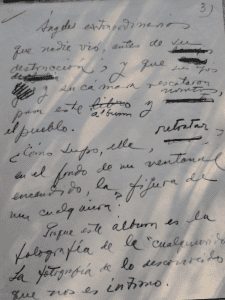 3)
Angeles extraordinarios
que nadie vió, antes de su
destrucción, y que
y su cámara rescataron
para este album y
el pueblo. retratar,
¿Cómo supo, ella,
en el fondo de un ventanal
encendido, la figura de
un cualquiera?
Porque este album es la
fotografía de lo "cualquiera".
La fotografía de lo desconocido
que nos es íntimo.